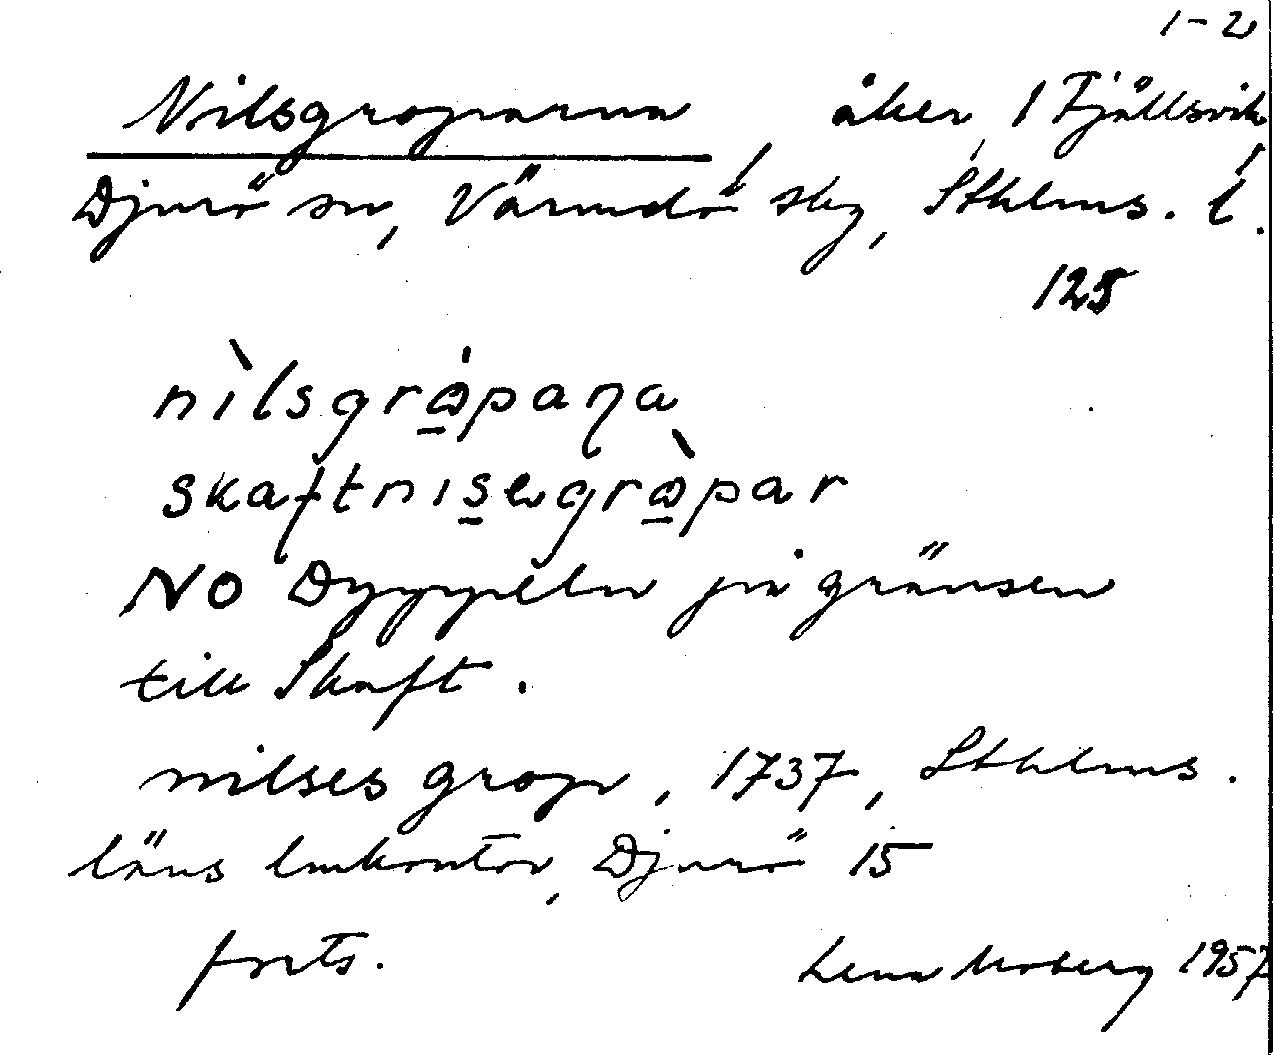 1-2
Nilsgroparna, åker, 1 Fjällsvik
Djurö sn, Värmdö skg, Sthlms. l.
125
nìlsgrɷpaɳa
skaftnisegrɷ̀par
NO Dyppeln på gränsen
till Skaft.
nilses grop, 1737, Sthlms.
läns lmkontor, Djurö 15
forts. Lena Moberg 1957